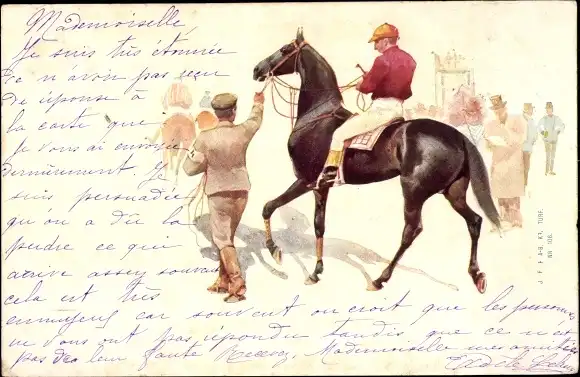 Mademoiselle
Je suis très étonnée
de n'avoir pas reçu
de réponse à
la carte que
je vous ai envoyée
dernièrement. Je
suis persuadée
qu'on a dû la
perdre ce qui
arrive assez souvent
cela est très
ennuyeux car souvent on croit que les personnes
ne vous ont pas répondu tandis que ce n'est
pas de leur faute Recevez, Mademoiselle mes amitiés
J. F. F. & B. KR. TURF.
NR 106.